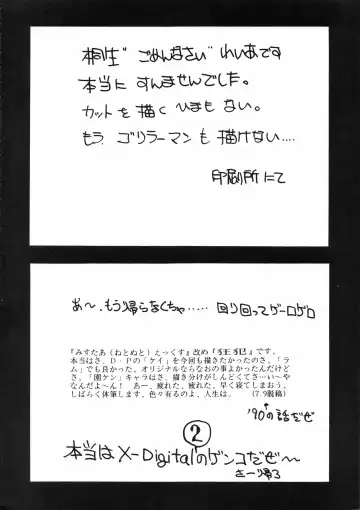 桐生"ごめんなさい"れいあです
本当にすんませんでした。
カットを描くひまもない。
もう、ゴリラーマンも描けない....
印刷所にて
あ〜、もう帰らなくちゃ......回り回ってゲーロゲロ
『みすたあ(ねとぬと)えっくす』改め『狂犯』です。
本当はさ、D・Pの「ケイ」を今回も描きたかったのさ、「ラ
ム」でも良かった、オリジナルならなおの事よかったんだけど
さ、「園ケン」キャラはさ、描き分けがしんどくてさ…い〜や
なんだよ〜ん! あー、疲れた、疲れた、早く寝てしまおう。
しばらく休筆します、色々有るのよ、人生は。(7.9脱稿)
'90の話だぜ
②
本当はX-Digitalのゲンコだぜ〜
さー帰ろ